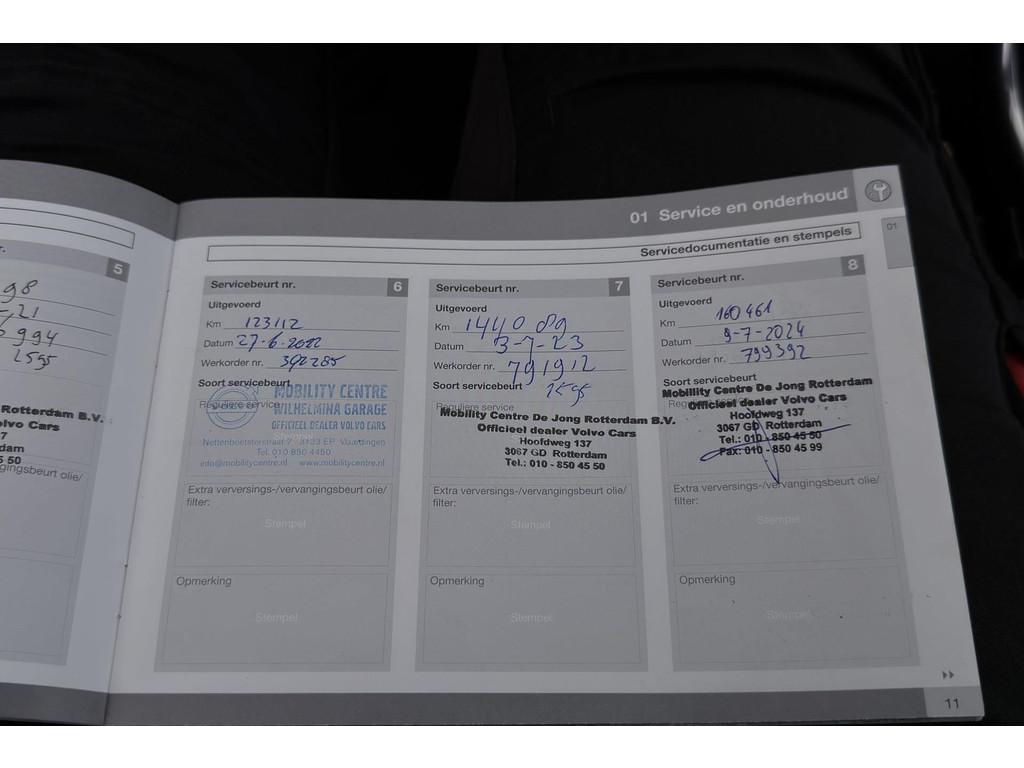 01 Service en onderhoud
01
Servicedocumentatie en stempels
5
98
21
994
Rotterdam B.V.
lvo Cars
7
dam
5 50
gingsbeurt olie/
Servicebeurt nr. 6
Uitgevoerd
Km 123112
Datum 27-6-2022
Werkorder nr. 392285
Soort servicebeurt
Reguliere service
MOBILITY CENTRE
WILHELMINA GARAGE
OFFICIEEL DEALER VOLVO CARS
Nettenboetsterstraat 7 3133 EP Vlaardingen
Tel. 010 850 4450
info@mobilitycentre.nl www.mobilitycentre.nl
Extra verversings-/vervangingsbeurt olie/
filter:
Stempel
Opmerking
Stempel
Servicebeurt nr. 7
Uitgevoerd
Km 144089
Datum 3-7-23
Werkorder nr. 791912
Soort servicebeurt
Reguliere service
Mobility Centre De Jong Rotterdam B.V.
Officieel dealer Volvo Cars
Hoofdweg 137
3067 GD Rotterdam
Tel.: 010 - 850 45 50
Extra verversings-/vervangingsbeurt olie/
filter:
Stempel
Opmerking
Stempel
Servicebeurt nr. 8
Uitgevoerd
Km 160461
Datum 9-7-2024
Werkorder nr. 799392
Soort servicebeurt
Mobility Centre De Jong Rotterdam
Officieel dealer Volvo Cars
Hoofdweg 137
3067 GD Rotterdam
Tel.: 010 - 850 45 50
Fax: 010 - 850 45 99
Extra verversings-/vervangingsbeurt olie/
filter:
Stempel
Opmerking
Stempel
11